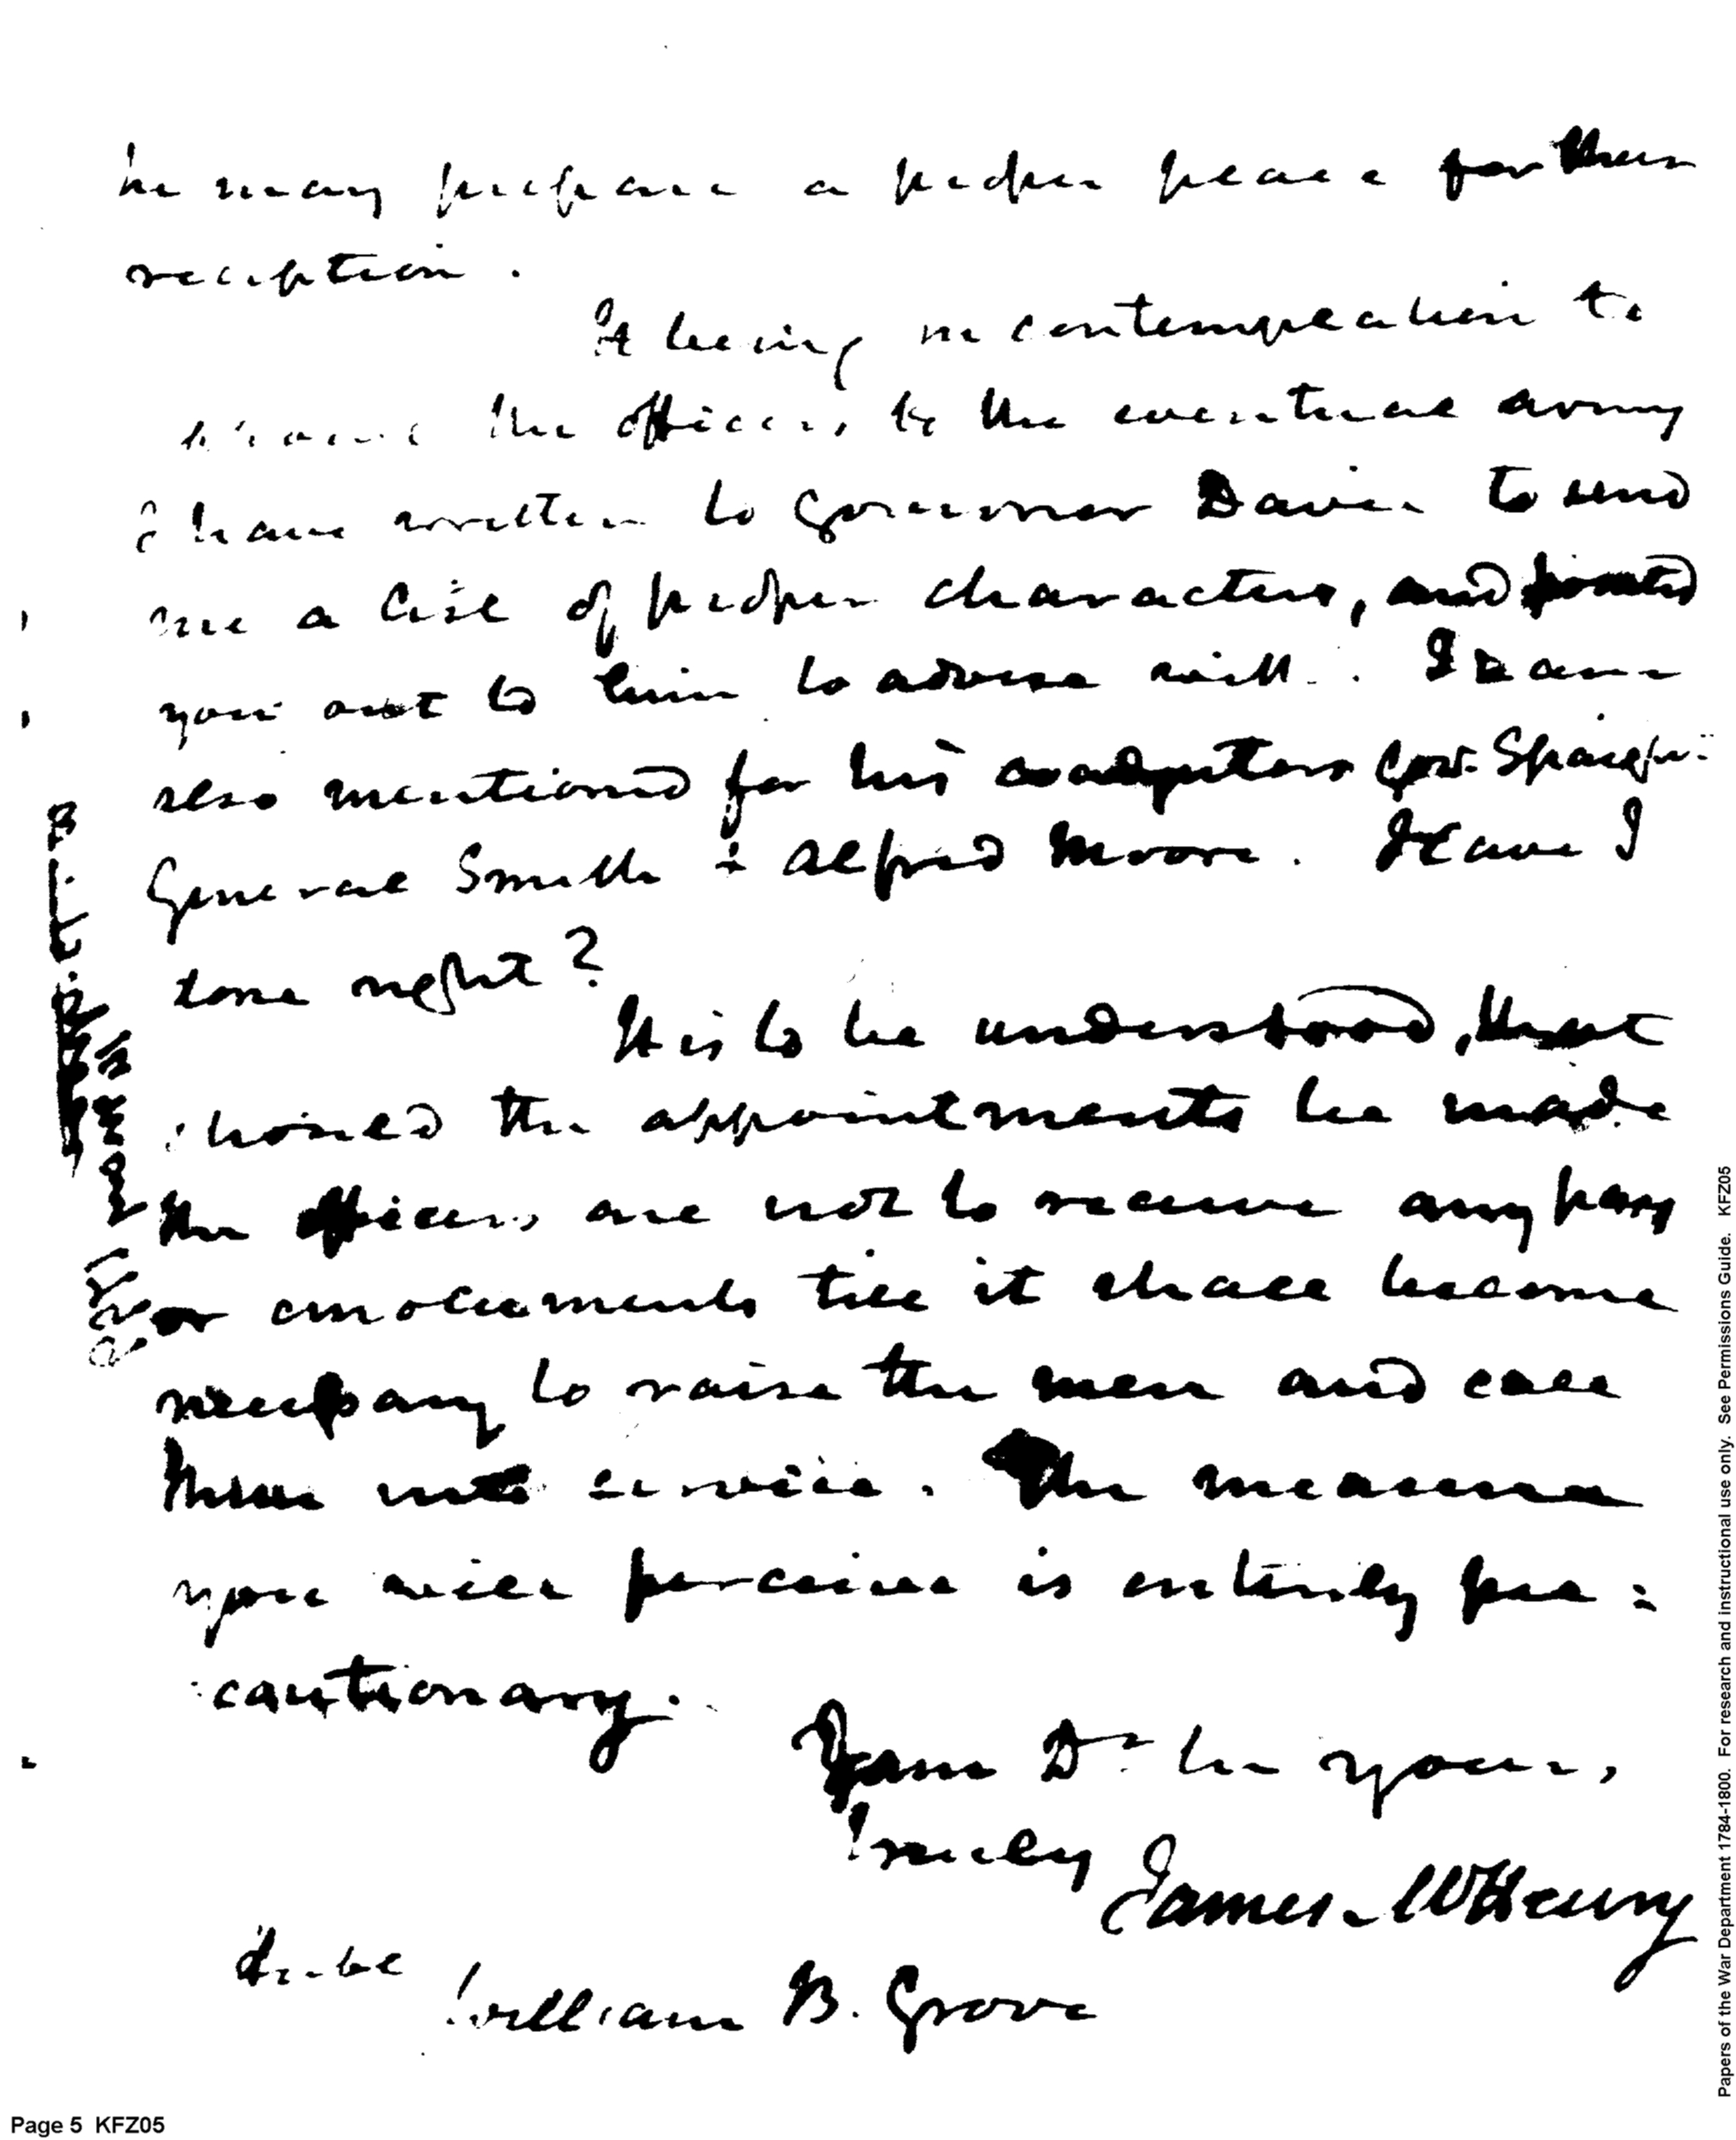 he may prepare a proper place for their
reception.
It being in contemplation to
the officers to the eventual army
I have written to Governor Davie to send
me a list of proper characters, and pointed
you out to him to advise with. I have
also mentioned for his Gov. Spaight
General Smith & Alfred Moore. Have I
done right?
It is to be understood, that
should the appointments be made
the officers are not to receive any pay
or emoluments till it shall become
necessary to raise the men and call
them into service. The measure
you will perceive is entirely pre=
cautionary.
I am Dr Sir yours
truly James McHenry
Honble
William B. Grove
Page 5 KFZ05
Papers of the War Department 1784-1800. For research and instructional use only. See Permissions Guide. KFZ05